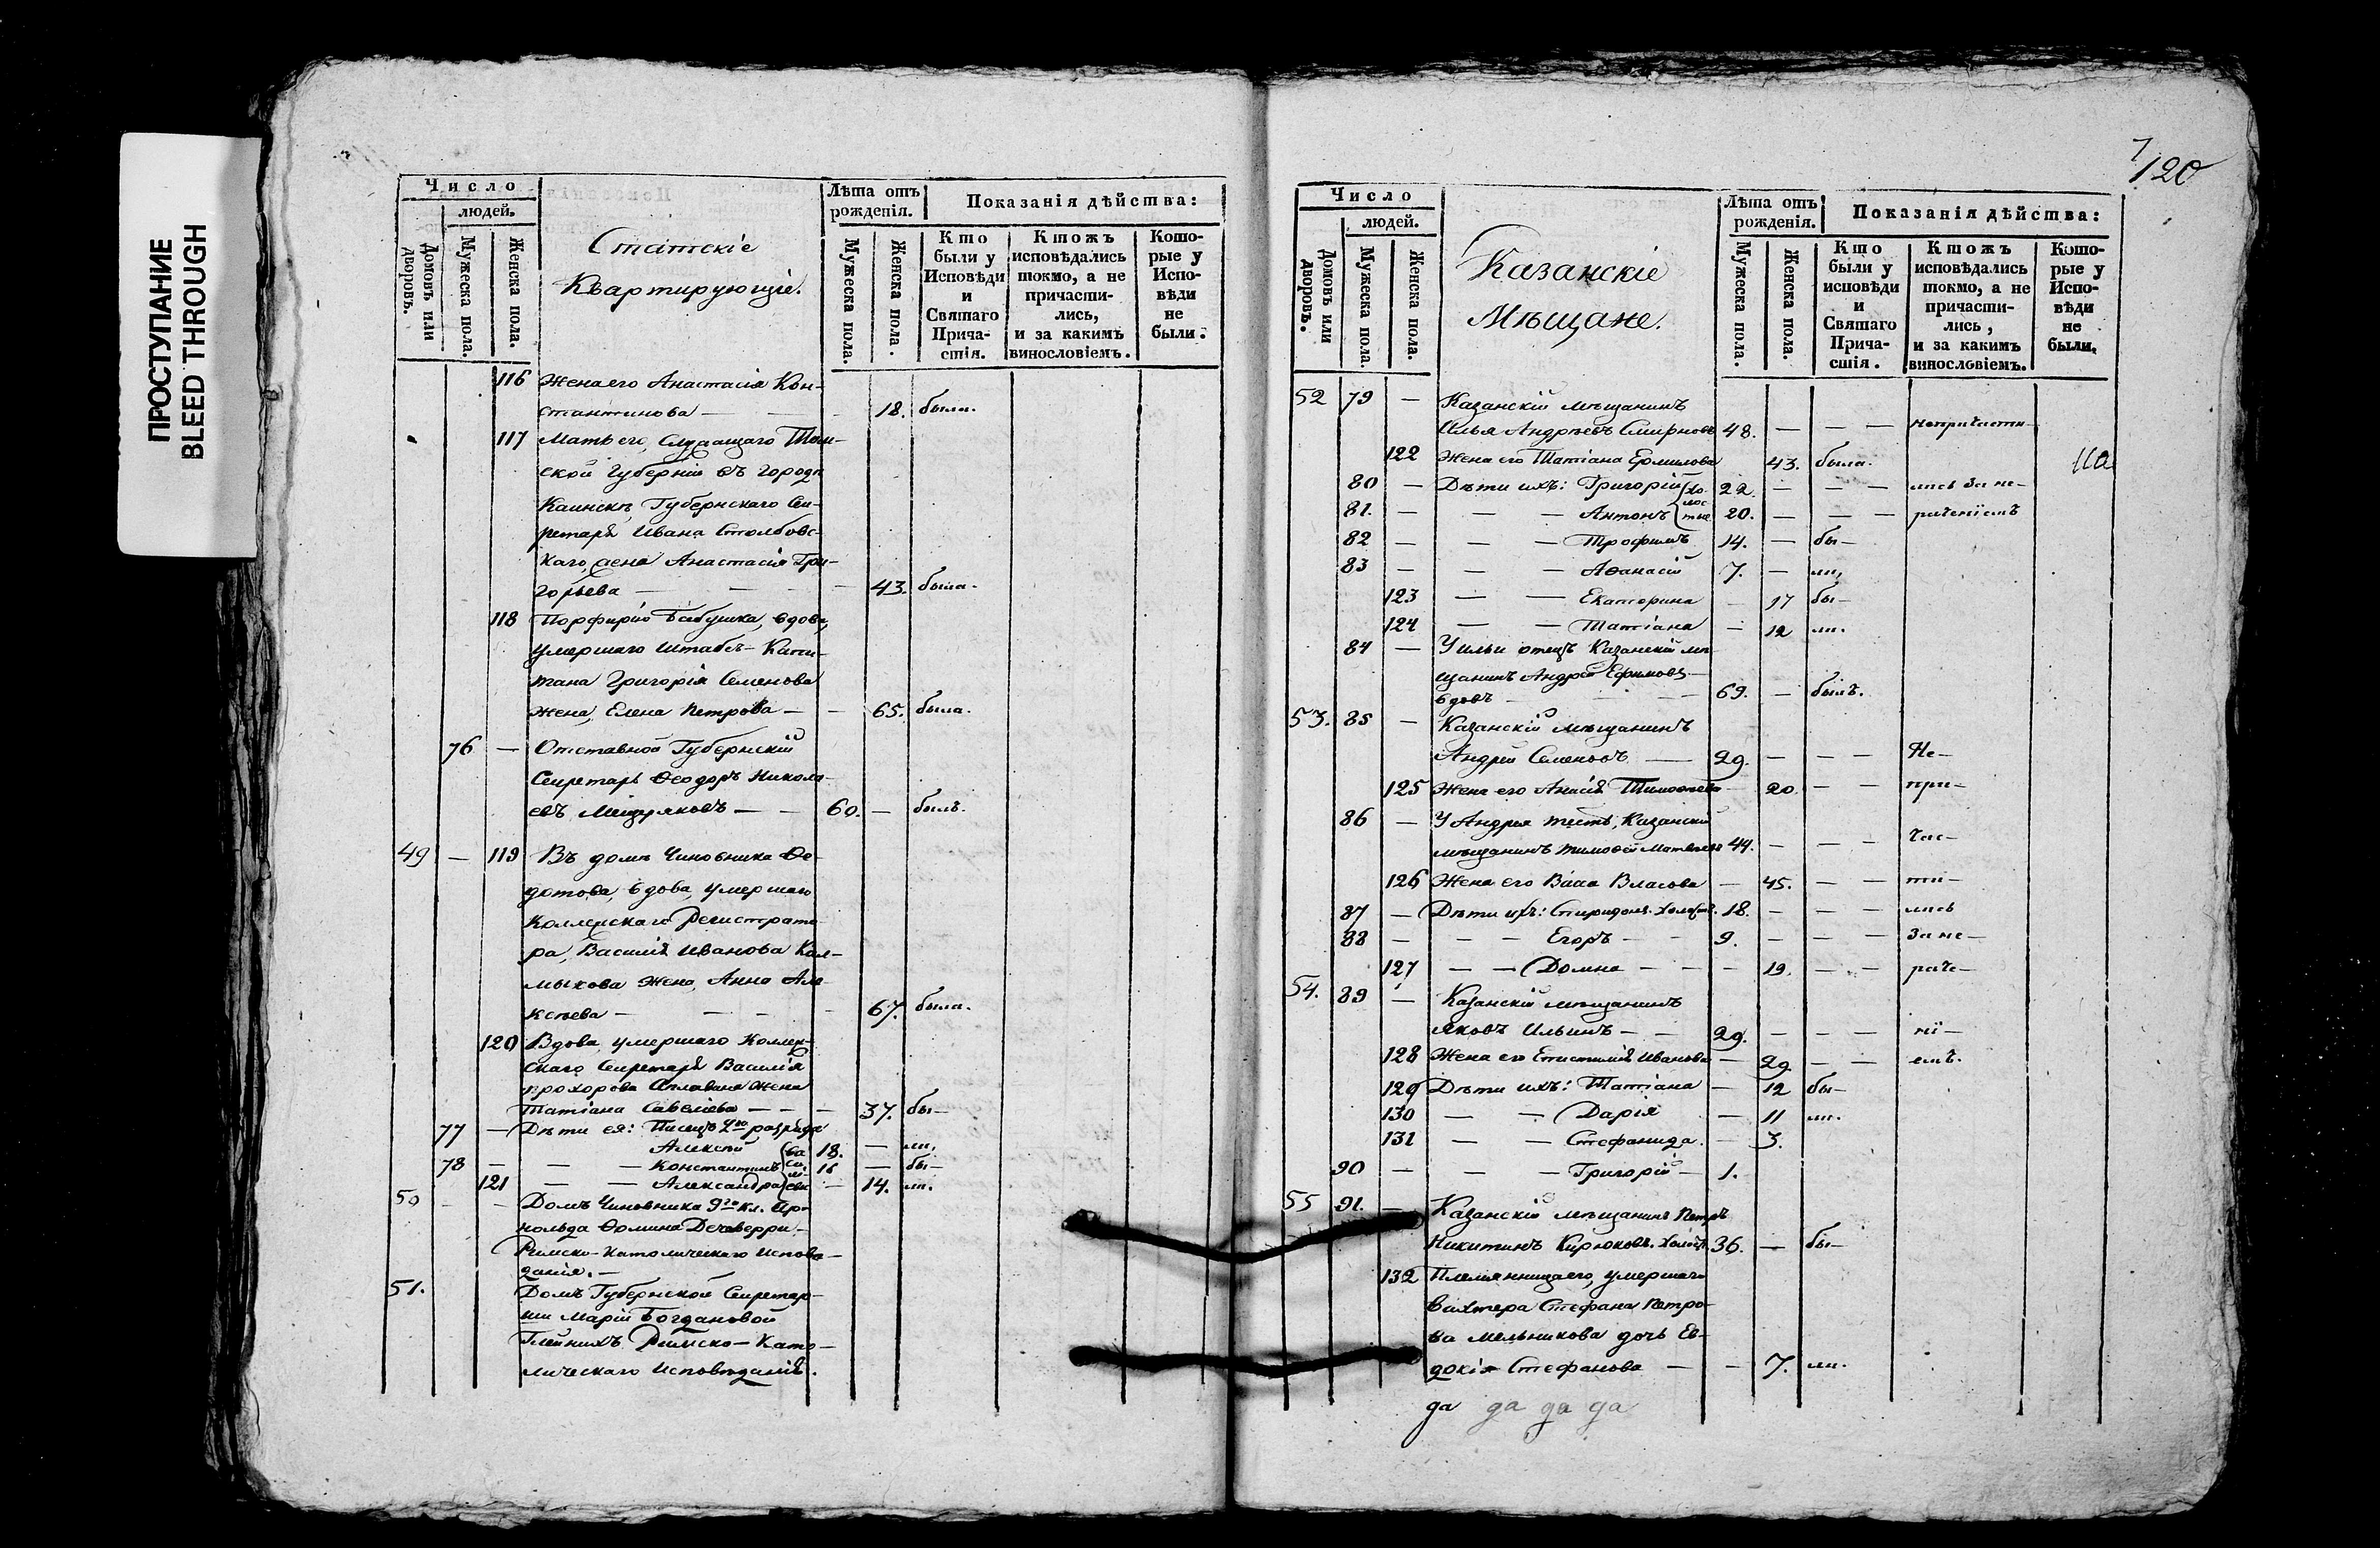 ПРОСТУПАНИЕ
BLEED THROUGH
Число
людей.
Домовъ или дворовъ.
Мужеска пола.
Женска пола.
Статскіе
Квартирующіе.
Лѣта отъ рожденія.
Мужеска пола.
Женска пола.
Показанія дѣйства:
Кто были у Исповѣди и Святаго Прича-стія.
Ктожъ исповѣдались токмо, а не причасти-лись, и за какимъ винословіемъ.
Кото-рые у Испо-вѣди не были.
116 Жена его Анастасія Кон-
стантинова — — — 18. была.
117 Мать его, Служащаго Том-
ской Губерніи въ городѣ
Каинскѣ, Губернскаго Сек-
ретаря Ивана Столбовс-
каго, жена Анастасія Гри-
горьева — — — — 43. была.
118 Порфирію бабушка, вдова,
умершаго Штабсъ-Капи-
тана Григорія Семенова
жена, Елена Петрова — — 65. была.
76 — Отставной Губернскій
Секретарь Ѳеодоръ Никола-
евъ — — 60. — былъ.
49 — 119 Въ домѣ Чиновника Ѳе-
дотова, вдова, умершаго
Коллежскаго Регистрато
ра, Василія Иванова Кал-
мыкова жена, Анна Але-
ксѣева — — — — 67. была.
120 Вдова, умершаго Коллеж-
скаго Секретаря Василія
Прохорова жена
Татіана Савельева — — — 37. бы—
77 — Дѣти ея: Писецъ 2го разряда
Алексѣй Ва 18. — ли,
78 — — — Константинъ си 16 — бы—
121 — — Александра — 14. ли.
50 — — Домъ Чиновника 9го кл. Ар-
нольда
Римско-Католическаго Испове-
данія. —
51. Домъ Губернской Секретар-
ши Маріи Богдановой
Римско-Като-
лическаго Исповѣданія.
7
120
Число
людей.
Домовъ или дворовъ.
Мужеска пола.
Женска пола.
Казанскіе
Мѣщане.
Лѣта отъ рожденія.
Мужеска пола.
Женска пола.
Показанія дѣйства:
Кто были у исповѣди и Святаго Прича-стія.
Ктожъ исповѣдались токмо, а не причасти-лись, и за какимъ винословіемъ.
Кото-рые у Испо-вѣди не были.
52 79 — Казанскій мѣщанинъ
Илья Андреевъ Смирновъ 48. — — — непричасти
122 Жена его Татіана Ермилова 43. была.
80 — Дѣти ихъ: Григорій хо- 22. — — — лись За не-
81. — — — Антонъ лос тые 20. — — — раченіемъ
82 — — — Трофимъ 14. — бы—
83 — — — Аѳанасій 7. — ли,
123 — — Екатерина — 17 бы—
124 — — Татіана — 12 ли.
84 — У Ильи отецъ Казанскій мѣ
щанинъ Андрей Ефимовъ —
вдовъ — — — 69. — былъ.
53. 85 — Казанскій мѣщанинъ
Андрей Семеновъ — 29. — — — Не—
125 Жена его Тимоѳеева — 20. — — при—
86 — У Андрея тесть, Казанскій
мѣщанинъ Тимоѳей Матвеевъ 44. — — — час—
126 Жена его Васса Власова — 45. — — ти—
87 — Дѣти ихъ: Спиридонъ холостъ. 18. — — — лись
88 — — — Егоръ — — 9. — — — За не—
127 — — Домна — — — 19. — — раче—
54. 89 — Казанскій мѣщанинъ
Яковъ Ильинъ — — 29. — — — ні—
128 Жена его Епистимія Иванова — 29 — — емъ.
129 Дѣти ихъ: Татіана — 12 бы—
130 — — Дарія — 11 ли.
131 — — Стефанида. — 3.
90 — — — Григорій — 1.
55 91. — Казанскій мѣщанинъ Петръ
Никитинъ Кирюковъ. холостъ. 36. — бы—
132 Племянница его, умершаго
Вахтера Стефана Петро-
ва Мельникова дочь Ев-
докія Стефанова — — 7. ли.
да да да да